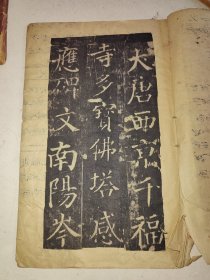 大唐西京千福
寺多寶佛塔感
應碑文南陽岑